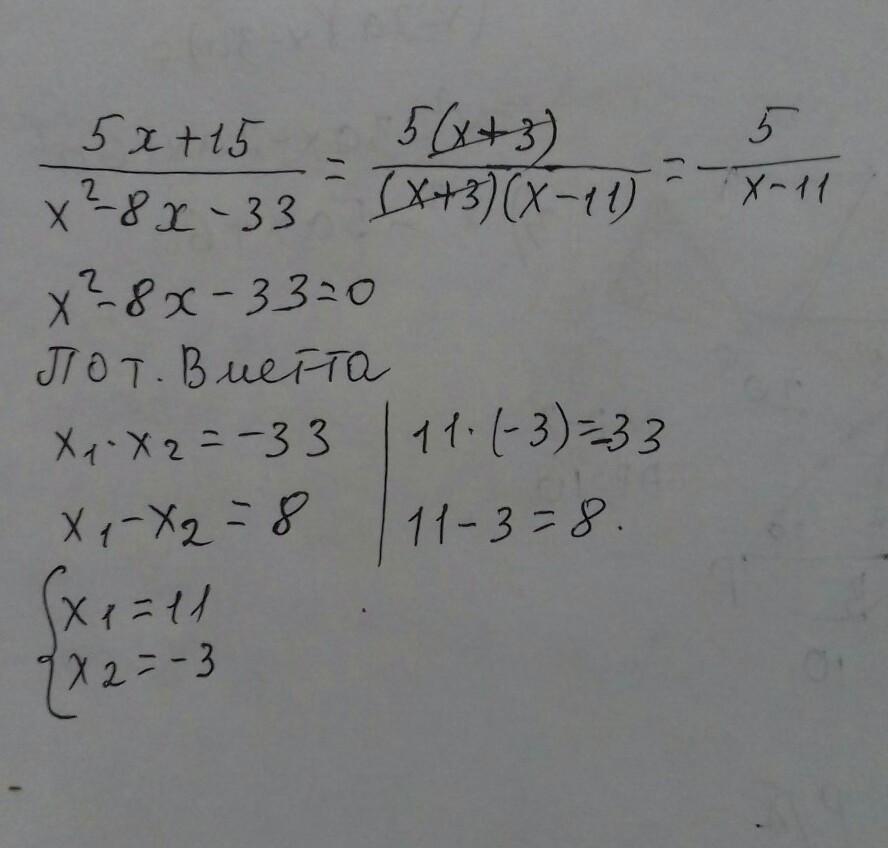 5x+15 / x²-8x-33 = 5(x+3) / (x+3)(x-11) = - 5 / x-11
x²-8x-33=0
По т. Виетта
x₁·x₂=-33 | 11·(-3)=-33
x₁-x₂=8 | 11-3=8.
{x₁=11
x₂=-3